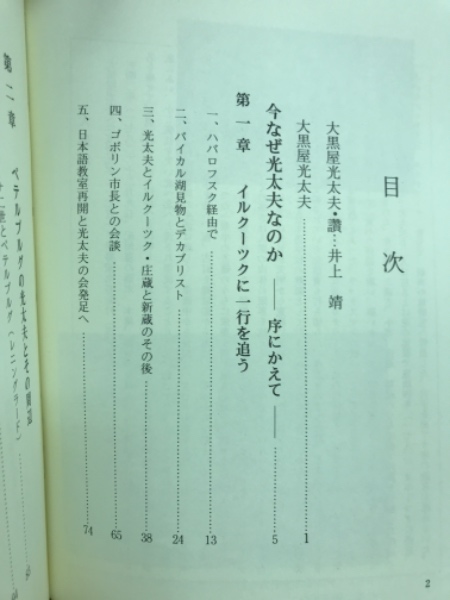 目次
大黒屋光太夫・讃…井上 靖
大黒屋光太夫……1
今なぜ光太夫なのか ―― 序にかえて ――……5
第一章 イルクーツクに一行を追う
一、ハバロフスク経由で……13
二、バイカル湖見物とデカブリスト……24
三、光太夫とイルクーツク・庄蔵と新蔵のその後……38
四、ゴボリン市長との会談……65
五、日本語教室再開と光太夫の会発足へ……74
第二章 ペテルブルグの光太夫とその周辺
世とペテルブルグ(レニングラード)
2